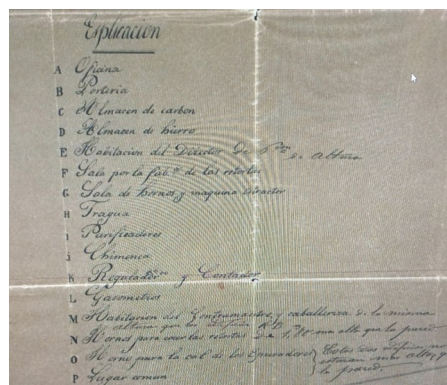 Esplicacion
A Oficina
B Porteria
C Almacen de carbon
D Almacen de hierro
E Habitacion del Director de de altura
F Sala por la fab.ⁿ de las retortas
G Sala de hornos y maquina estractor
H Fragua
I Purificadores
J Chimenea
K Regulador y Contador
L Gasometros
M Habitacion del Contramaestre y caballeriza de la misma
altura que los
N Hornos para cocer las retortas de 1,80 mas alto que la pared
O Horno para la cal de los Epuradores Estos dos
estarian mas altos que
P Lugar comun
la pared.